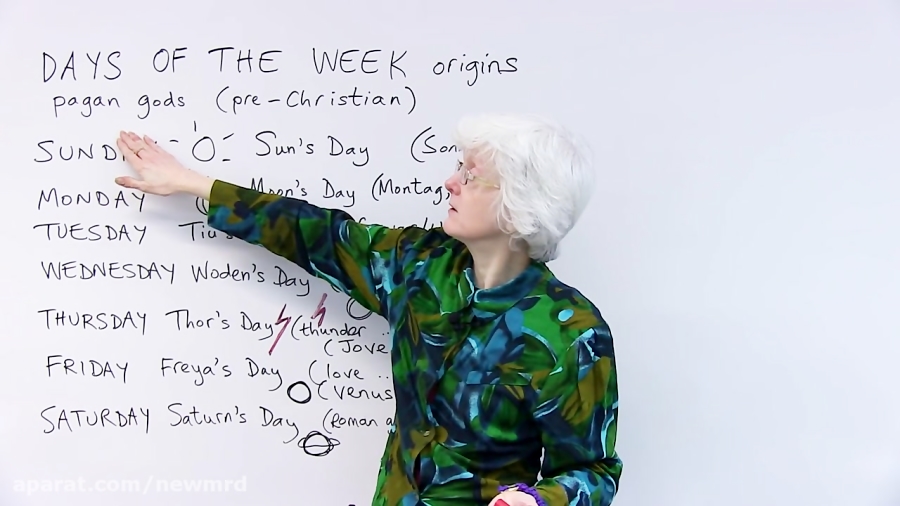 DAYS OF THE WEEK origins
pagan gods (pre-Christian)
Sun's Day
MONDAY Moon's Day (Montag,
TUESDAY
WEDNESDAY Woden's Day
THURSDAY Thor's Day (thunder ..
(Jove
FRIDAY Freya's Day (love ...
(Venus
SATURDAY Saturn's Day (Roman
aparat.com/newmrd